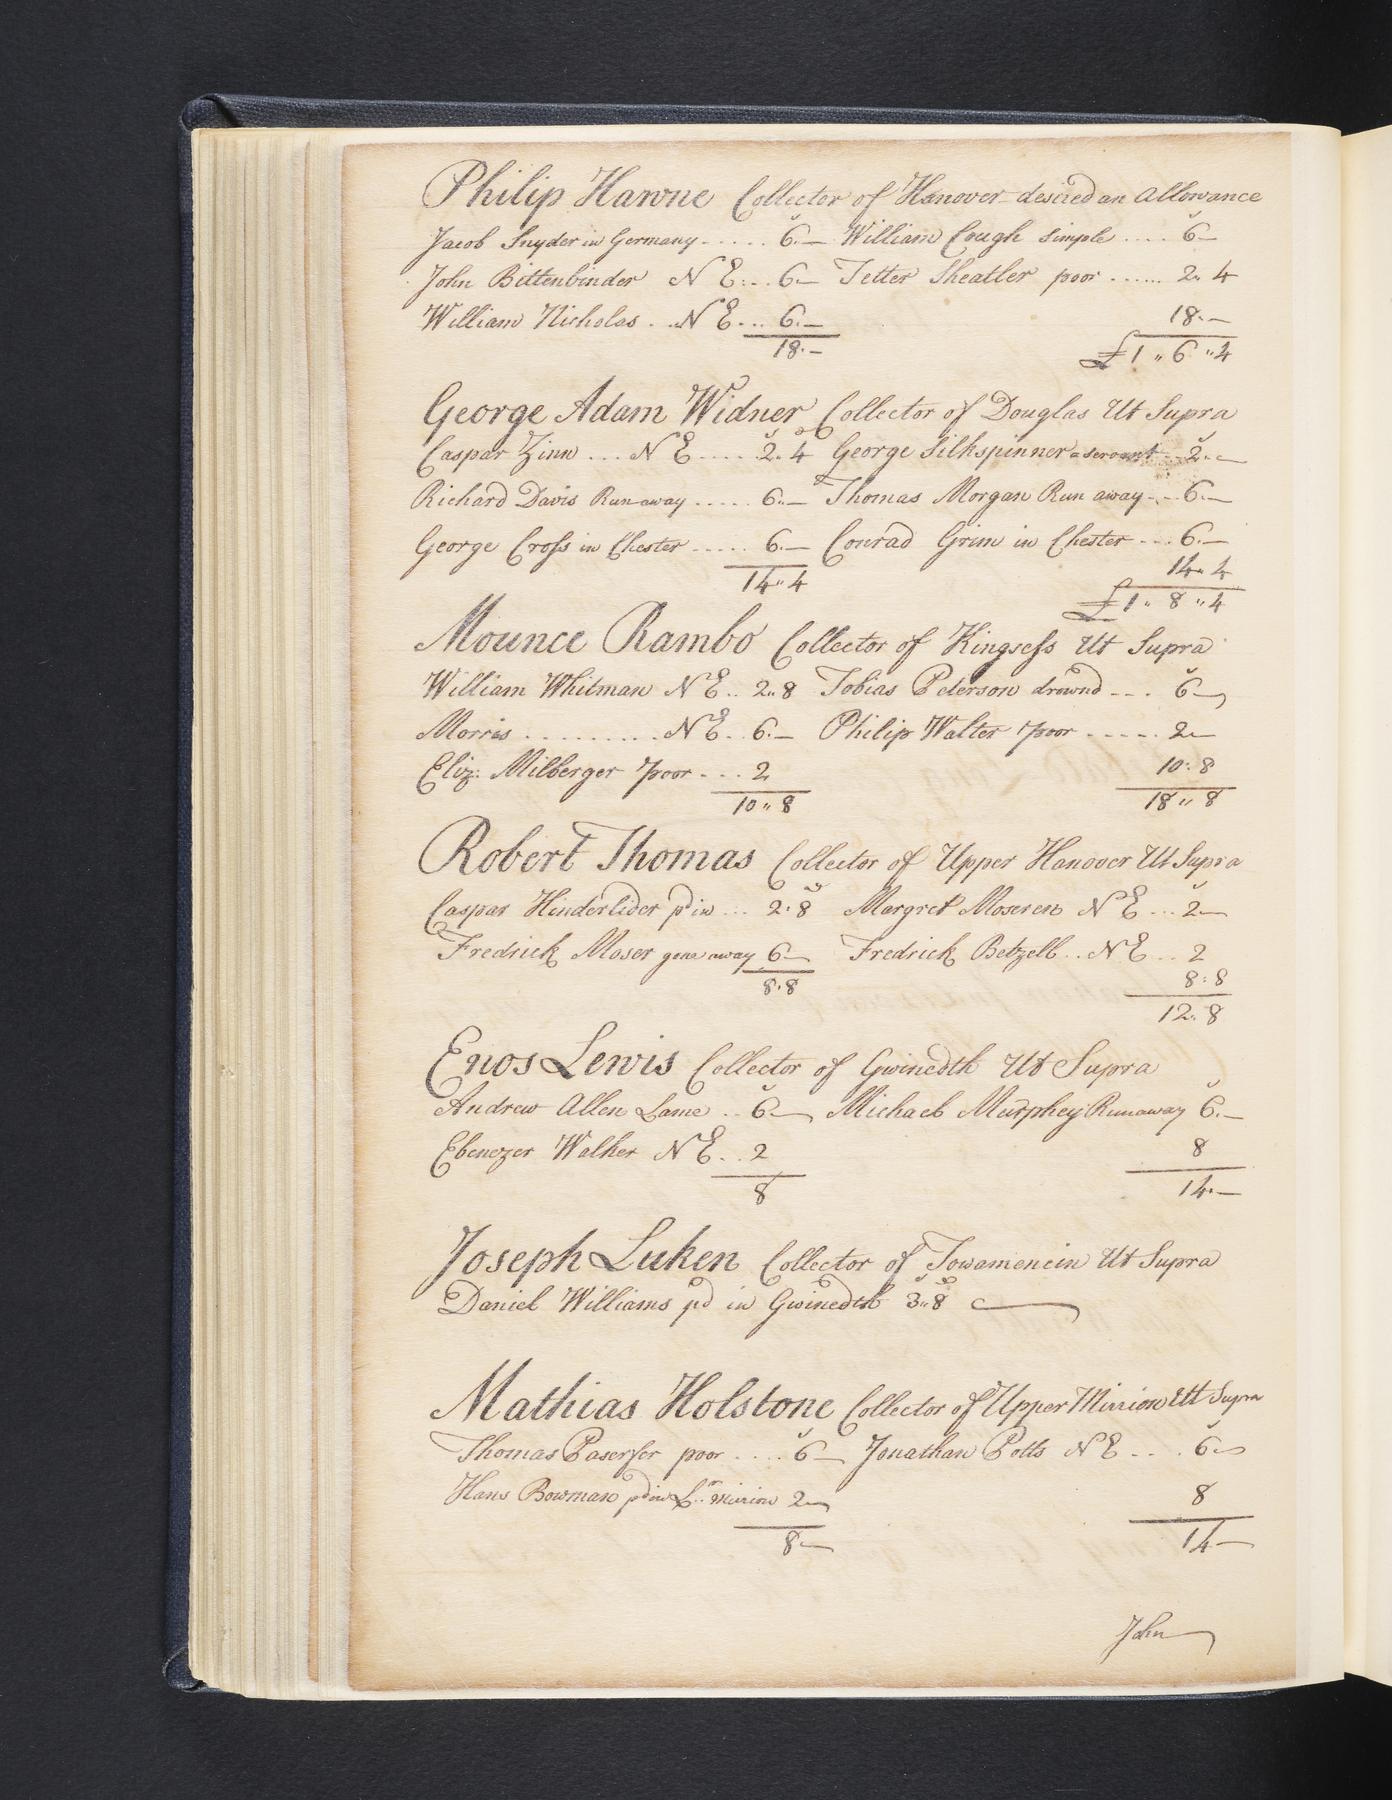 Philip Hawne Collector of Hanover desired an Allowance
Jacob Snyder in Germany ..... 6.— William Cough simple .... 6—
John Bittenbinder N E... 6— Tetter Sheatler poor ...... 2.. 4
William Nicholas ... N E ... 6.— 18.—
18.— £1 .. 6 .. 4
George Adam Widner Collector of Douglas Ut Supra
Caspar Zinn ... N E .... 2. 4 George Silkspinner a servant .. 2. —
Richard Davis Run away ..... 6.— Thomas Morgan Run away ... 6.—
George Cross in Chester ..... 6.— Conrad Grim in Chester ... 6.—
14.. 4
14.. 4 £1 .. 8 .. 4
Mounce Rambo Collector of Kingsess Ut Supra
William Whitman N E .. 2..8 Tobias Peterson drownd ... 6—
Morris ......... N E .. 6.— Philip Walter poor ..... 2—
Eliz: Milberger poor ... 2 10: 8
10 .. 8 18 .. 8
Robert Thomas Collector of Upper Hanover Ut Supra
Caspar Hinderlider pd in ... 2. 8 Margret Moseren N E ... 2—
Fredrick Moser gone away 6— Fredrick Betzell .. N E .. 2
8.8 8:8
12. 8
Enos Lewis Collector of Gwinedth Ut Supra
Andrew Allen Lame .. 6— Michael Murphey Run away 6.—
Ebenezer Walker N E .. 2 8
8 14.—
Joseph Luken Collector of Towamencin Ut Supra
Daniel Williams pd in Gwinedth 3..8
Mathias Holstone Collector of Upper Mirion Ut Supra
Thomas poor .... 6— Jonathan Potts N E ... 6—
Hans Bowman pd in Lr. Mirion 2— 8
8— 14—
John